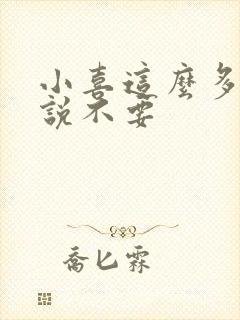 小喜這麼多
說不要
喬匕霖